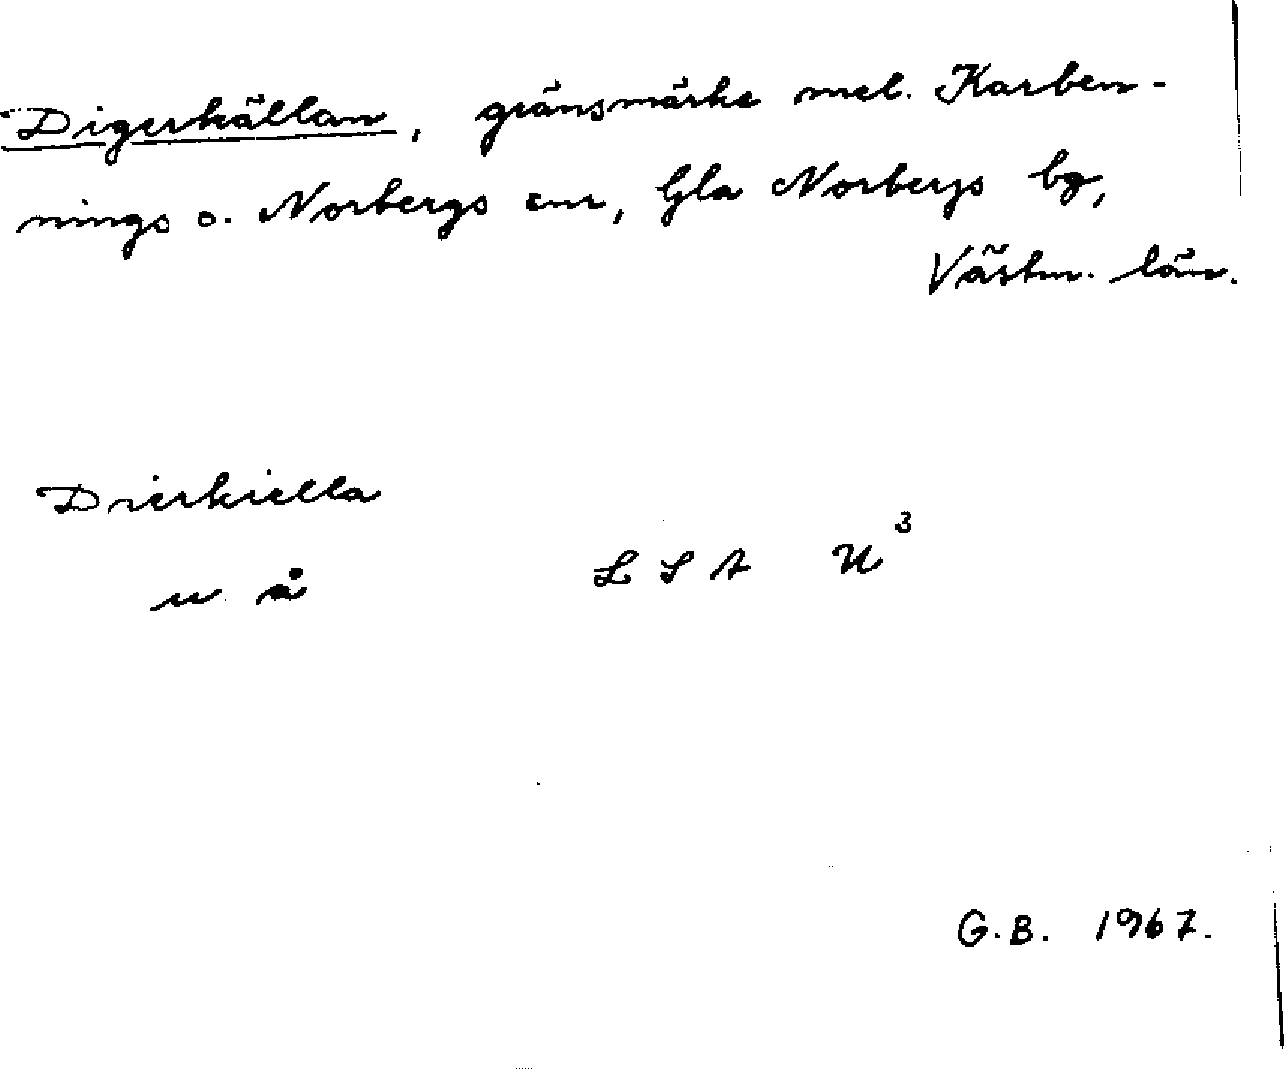 Digerkällan, gränsmärke mel. Karben-
nings o. Norbergs snr, Gla Norbergs bg,
Västm. län.
Dierkiella
u å LSA U³
G.B. 1967.